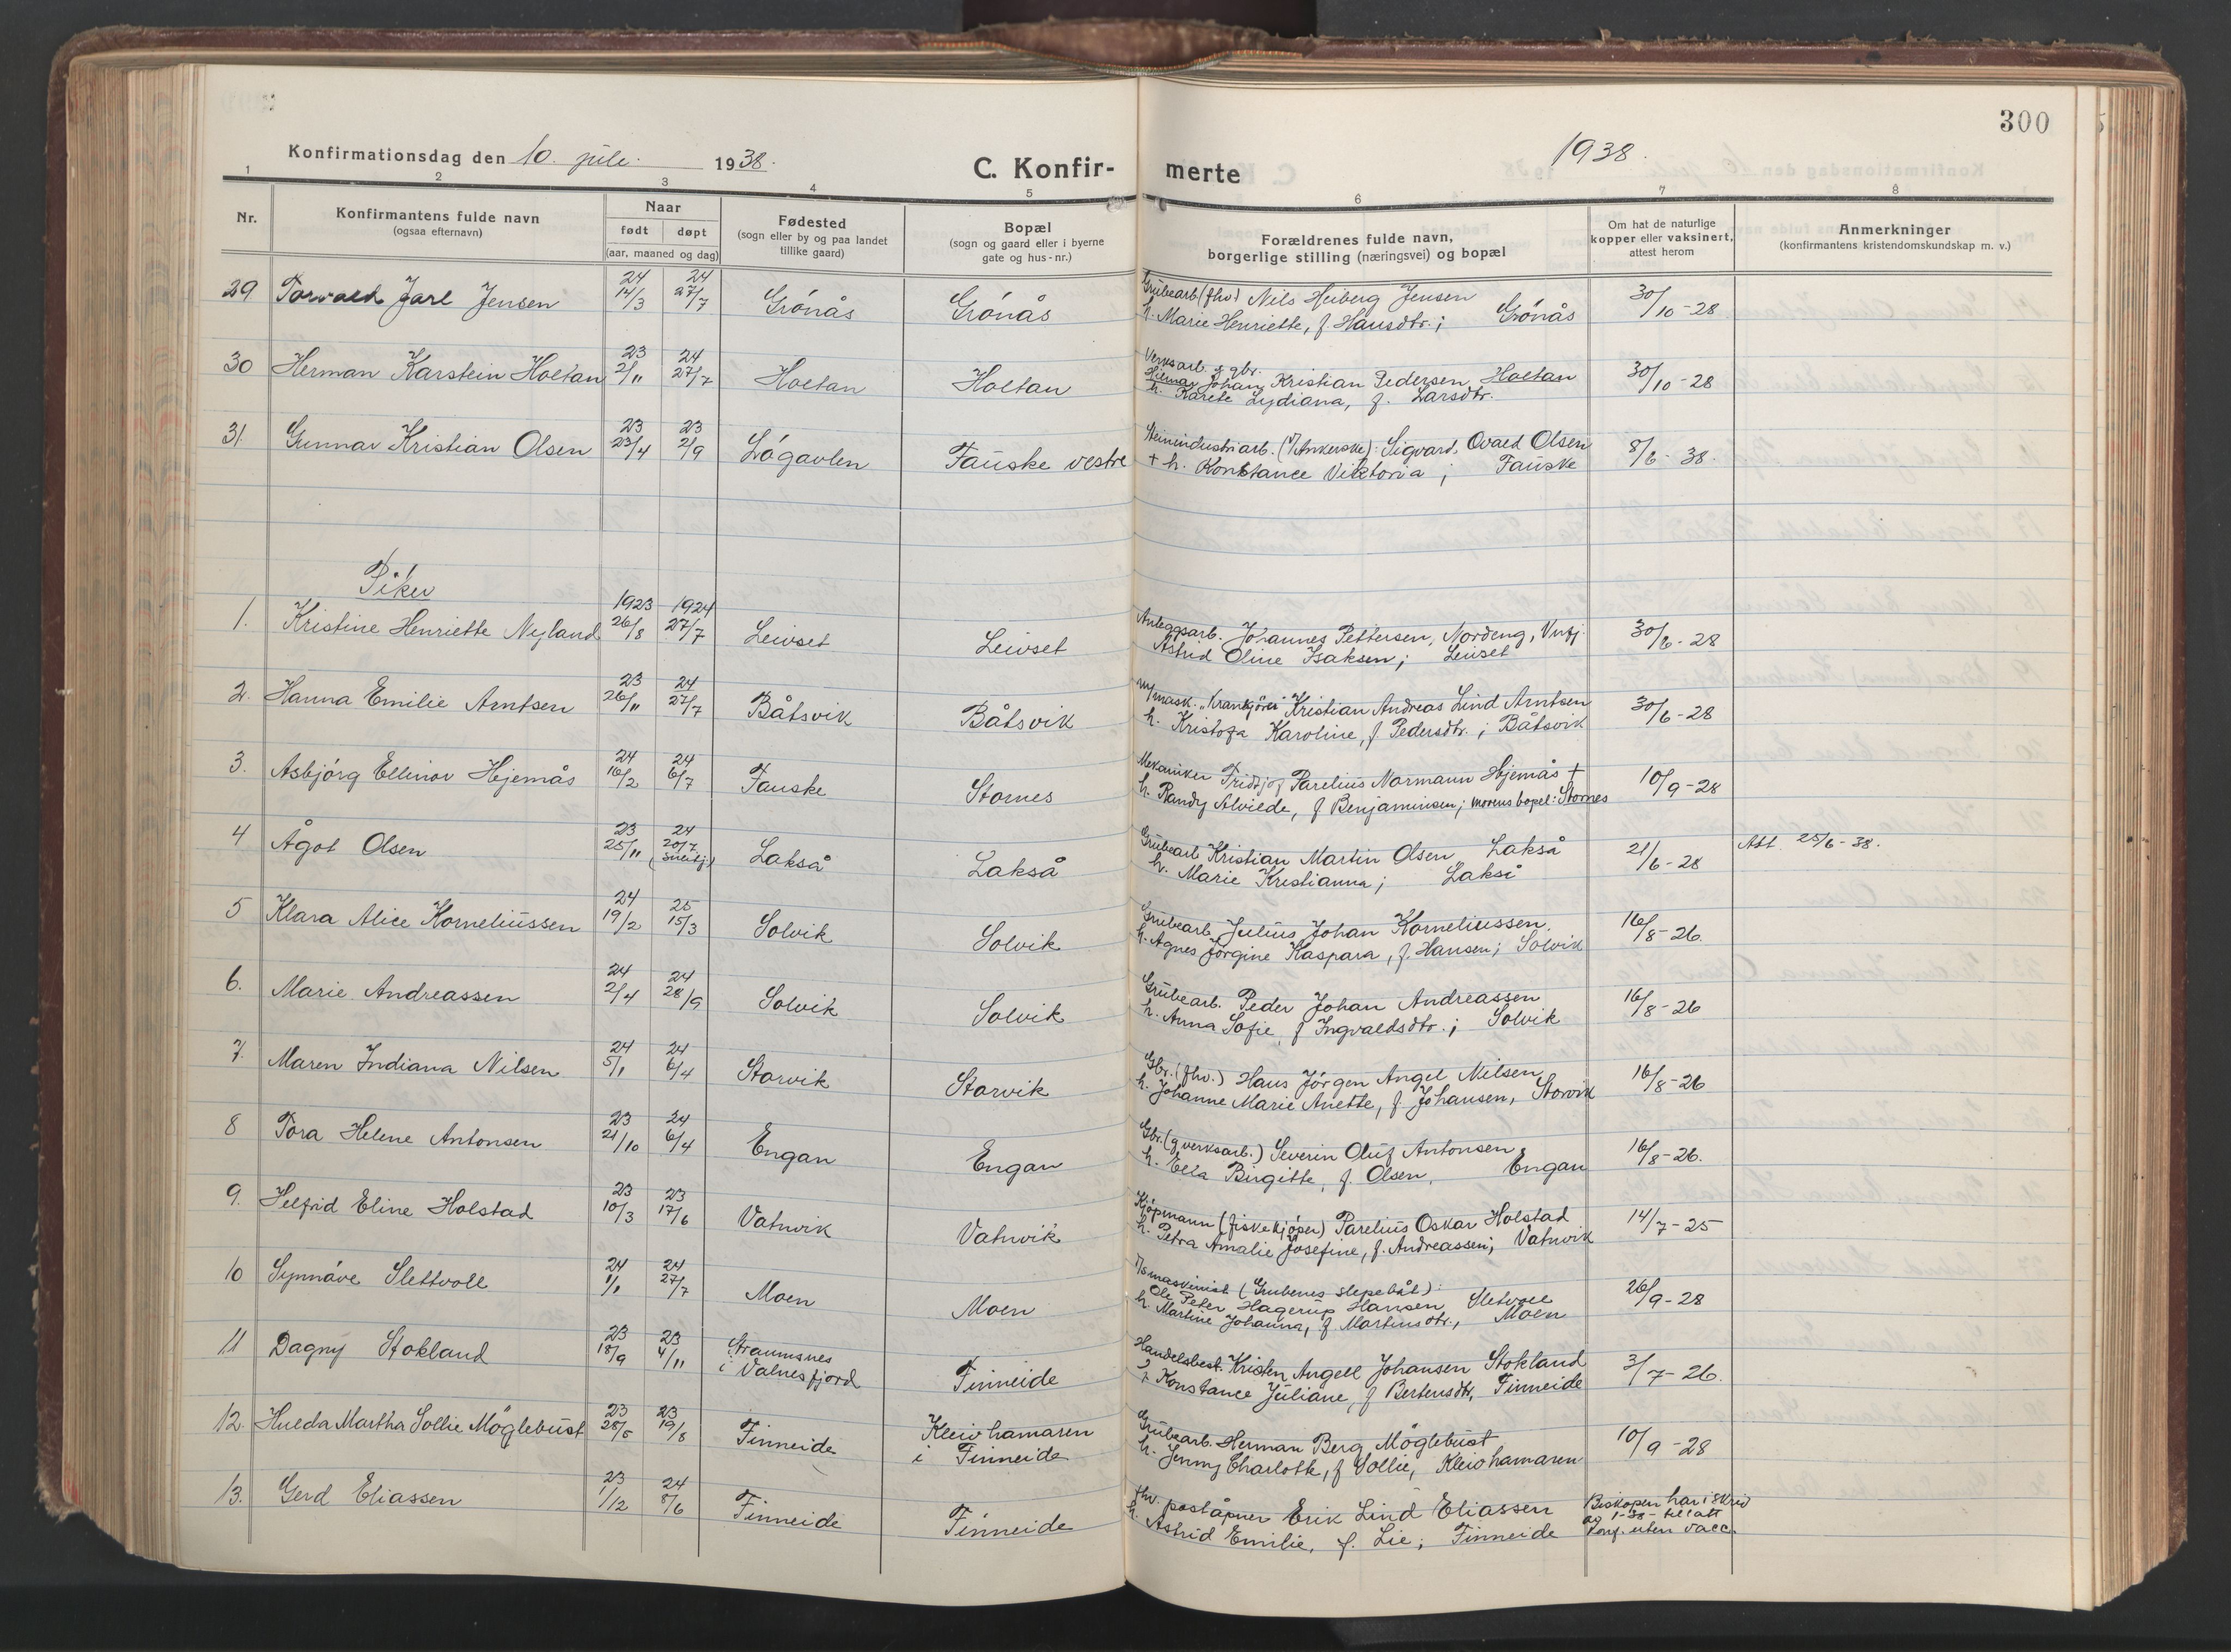 300
Konfirmationsdag den 10. juli. 1938.
C. Konfir-
merte
1938.
1 2 3 4 5 6 7 8
Nr.
Konfirmantens fulde navn
(ogsaa efternavn)
Naar
født døpt
(aar, maaned og dag)
Fødested
(sogn eller by og paa landet
tillike gaard)
Bopæl
(sogn og gaard eller i byerne
gate og hus-nr.)
Forældrenes fulde navn,
borgerlige stilling (næringsvei) og bopæl
Om hat de naturlige
kopper eller vaksinert,
attest herom
Anmerkninger
(konfirmantens kristendomskundskap m. v.)
24 24
29 Torvald Jarl Jensen 14/3 27/7 Grönås Grönås Grubearb. (fhv) Nils Heiberg Jensen 30/10-28
h. Marie Henriette, f. Hansdtr.; Grönås
23 24
30 Herman Karstein Holtan 2/11 27/7 Holtan Holtan Verksarb. g gbr. 30/10-28
Hilmar Johan Kristian Pedersen Holtan
h. Karete Lydiana, f. Larsdtr.
23 23
31. Gunnar Kristian Olsen 23/4 2/9 Lögavlen Fauske vestre Steinindustriarb. (Ankerske): Sigvard Ovald Olsen 8/6-38.
+ h. Konstance Viktoria; Fauske
Piker
1923 1924
1. Kristine Henriette Nyland 26/8 27/7 Leivset Leivset Anleggsarb. Johannes Pettersen, Nordeng, Vnfj. 30/6-28
Astrid Oline Isaksen; Leivset
23 24
2. Hanna Emilie Arntsen 26/11 27/7 Båtsvik Båtsvik Kristian Andreas Lind Arntsen 30/6-28
h. Kristofa Karoline, f. Pedersdtr.; Båtsvik
24 24
3. Asbjörg Ellinor Hjemås 16/2 6/7 Fauske Stornes Mekaniker Fridtjof Parelius Normann Hjemås + 10/9-28
h. Randy Alvilde, f Benjaminsen; morens bopel: Stornes
23 24
4 Ågot Olsen 25/11 20/7 Lakså Lakså Grubearb Kristian Martin Olsen Lakså 21/6-28 Att. 25/6-38.
h. Marie Kristianna; Lakså
24 25
5 Klara Alice Korneliussen 19/2 15/3 Solvik Solvik Grubearb. Julius Johan Korneliussen. 16/8-26.
h. Agnes Jörgine Kaspara, f. Hansen; Solvik
24 24
6. Marie Andreassen 2/4 28/9 Solvik Solvik Grubearb. Peder Johan Andreassen 16/8-26
h. Anna Sofie, f Ingvaldsdtr.; Solvik
24 24
7. Maren Indiana Nilsen 5/1 6/4 Storvik Storvik Gbr. (fhv.) Hans Jörgen Angel Nilsen 16/8-26
h. Johanne Marie Anette, f. Johansen, Storvik
23 24
8 Tora Helene Antonsen 21/10 6/4 Engan Engan Gbr. (g verksarb.) Severin Oluf Antonsen 16/8-26.
h. Ella Birgitte, f. Olsen, Engan
23 23
9. Helfrid Eline Holstad 10/3 17/6 Vatnvik Vatnvik Kjöpmann (fiskekjöper) Parelius Oskar Holstad 14/7-25
h. Petra Amalie Josefine, f. Andreassen; Vatnvik
24 24
10 Synnöve Slettvoll 1/1 27/7 Moen Moen maskinist (Grubenes slepebåt): 26/9-28
Ole Peter Hagerup Hansen Sletvoll
h. Martine Johanna, f. Martinsdtr., Moen
23 23
11 Dagny Stokland 18/9 4/11 Straumsnes i Valnesfjord Finneide Handelsbest. Kristen Angell Johansen Stokland 3/7-26.
Konstance Juliane, f Bertensdtr, Finneide
23 23
12. Hulda Martha Sollie Möglebust 28/5 19/8 Finneide Kleivhamaren i Finneide Grubearb. Herman Berg Möglebust 10/9-28
h. Jenny Charlotte, f Sollie, Kleivhamaren
23 24
13. Gerd Eliassen 1/12 8/6 Finneide Finneide fhv. poståpner Erik Lind Eliassen Biskopen har i skriv
h. Astrid Emilie, f. Lie; Finneide av 1-38- tillatt
konf. uten vacc.